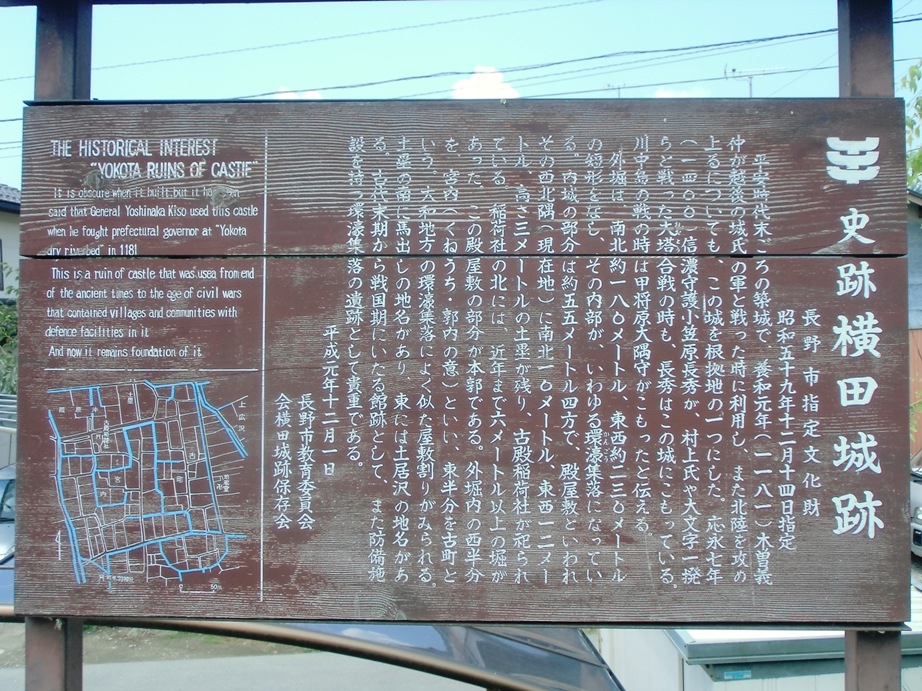 史跡横田城跡
長野市指定文化財
昭和五十九年十二月十四日指定
平安時代末ごろの築城で、養和元年(一一八一)木曽義
仲が越後の城氏の軍と戦った時に利用し、また北陸を攻め
上るについても、この城を根拠地の一つにした。応永七年
(一四〇〇)信濃守護小笠原長秀が、村上氏や大文字一揆
らと戦った大塔合戦の時も、長秀はこの城にこもっている。
川中島の戦の時は甲将原大隅守がこもったと伝える。
外堀は、南北約一八〇メートル、東西約二三〇メートル
の矩形をなし、その内部が、いわゆる環濠集落になってい
る。内城の部分は約五五メートル四方で、殿屋敷といわれ
その西北隅(現在地)に南北一〇メートル、東西一二メー
トル、高さ三メートルの土塁が残り、古殿稲荷社が祀られ
ている。稲荷社の北には、近年まで六メートル以上の堀が
あった。この殿屋敷の部分が本郭である。外堀内の西半分
を、宮内(くねうち・郭内の意)といい、東半分を古町と
いう。大和地方の環濠集落によく似た屋敷割りがみられる。
土塁の南に馬出しの地名があり、東には土居沢の地名があ
る。古代末期から戦国期にいたる館跡として、また防備施
設を持つ環濠集落の遺跡として貴重である。
平成元年十二月一日
長野市教育委員会
会横田城跡保存会
THE HISTORICAL INTEREST
"YOKOTA RUINS OF CASTLE"
It is obscure when it built, but it has been
said that General Yoshinaka Kiso used this castle
when he fought prefectural governor at "Yokota
dry riverbed" in 1181.
This is a ruin of castle that was used from end
of the ancient times to the age of civil wars
that contained villages and communities with
defence facilities in it.
And now it remains foundation of it.
上広沢
古町
宮内
50m